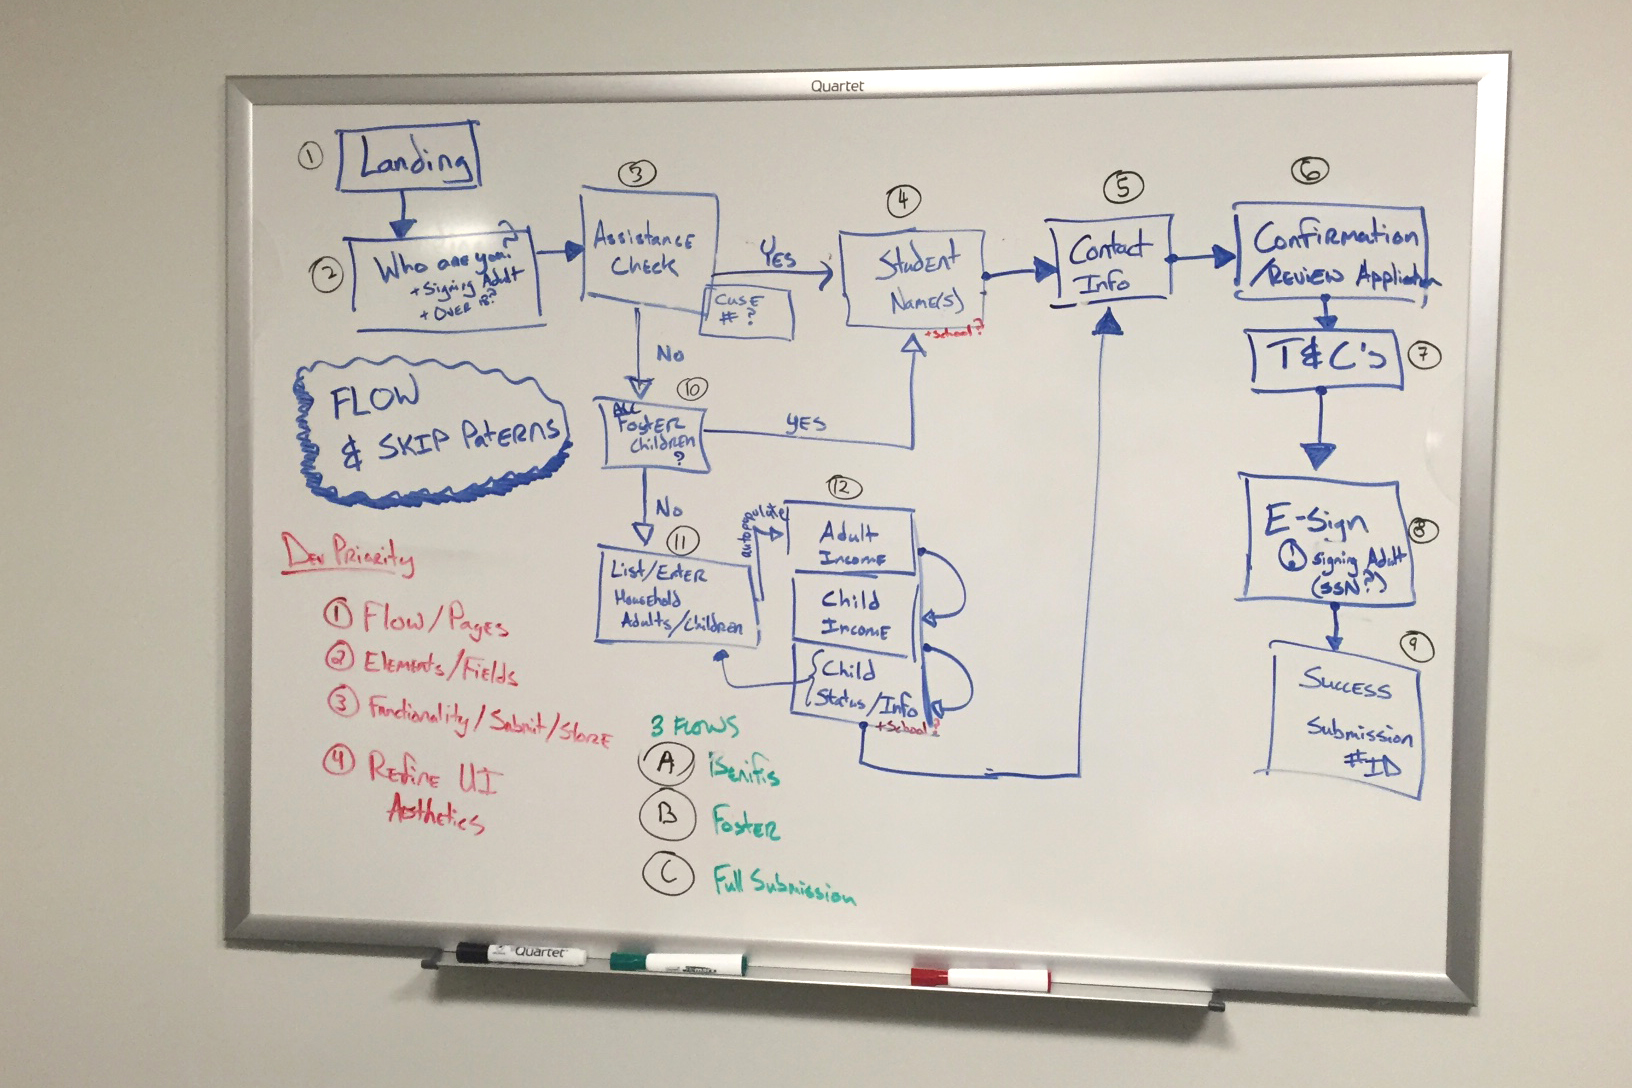 Quartet
1
Landing
2
Who are you?
+ Signing Adult
+ Over 18?
3
Assistance
Check
Yes
Case
# ?
No
4
Student
Name(s)
+School?
5
Contact
Info
6
Confirmation
/Review Application
7
T&C's
8
E-Sign
Signing Adult
(SSN?)
9
Success
Submission
#ID
10
ALL
Foster
Children
?
YES
No
11
List/Enter
Household
Adults/Children
autopopulate
12
Adult
Income
Child
Income
Child
Status/Info
+School?
FLOW
& SKIP PATERNS
Dev Priority
1 Flow/Pages
2 Elements/Fields
3 Functionality/Submit/Store
4 Refine UI
Aesthetics
3 FLOWS
A Benifis
B Foster
C Full Submission
Quartet